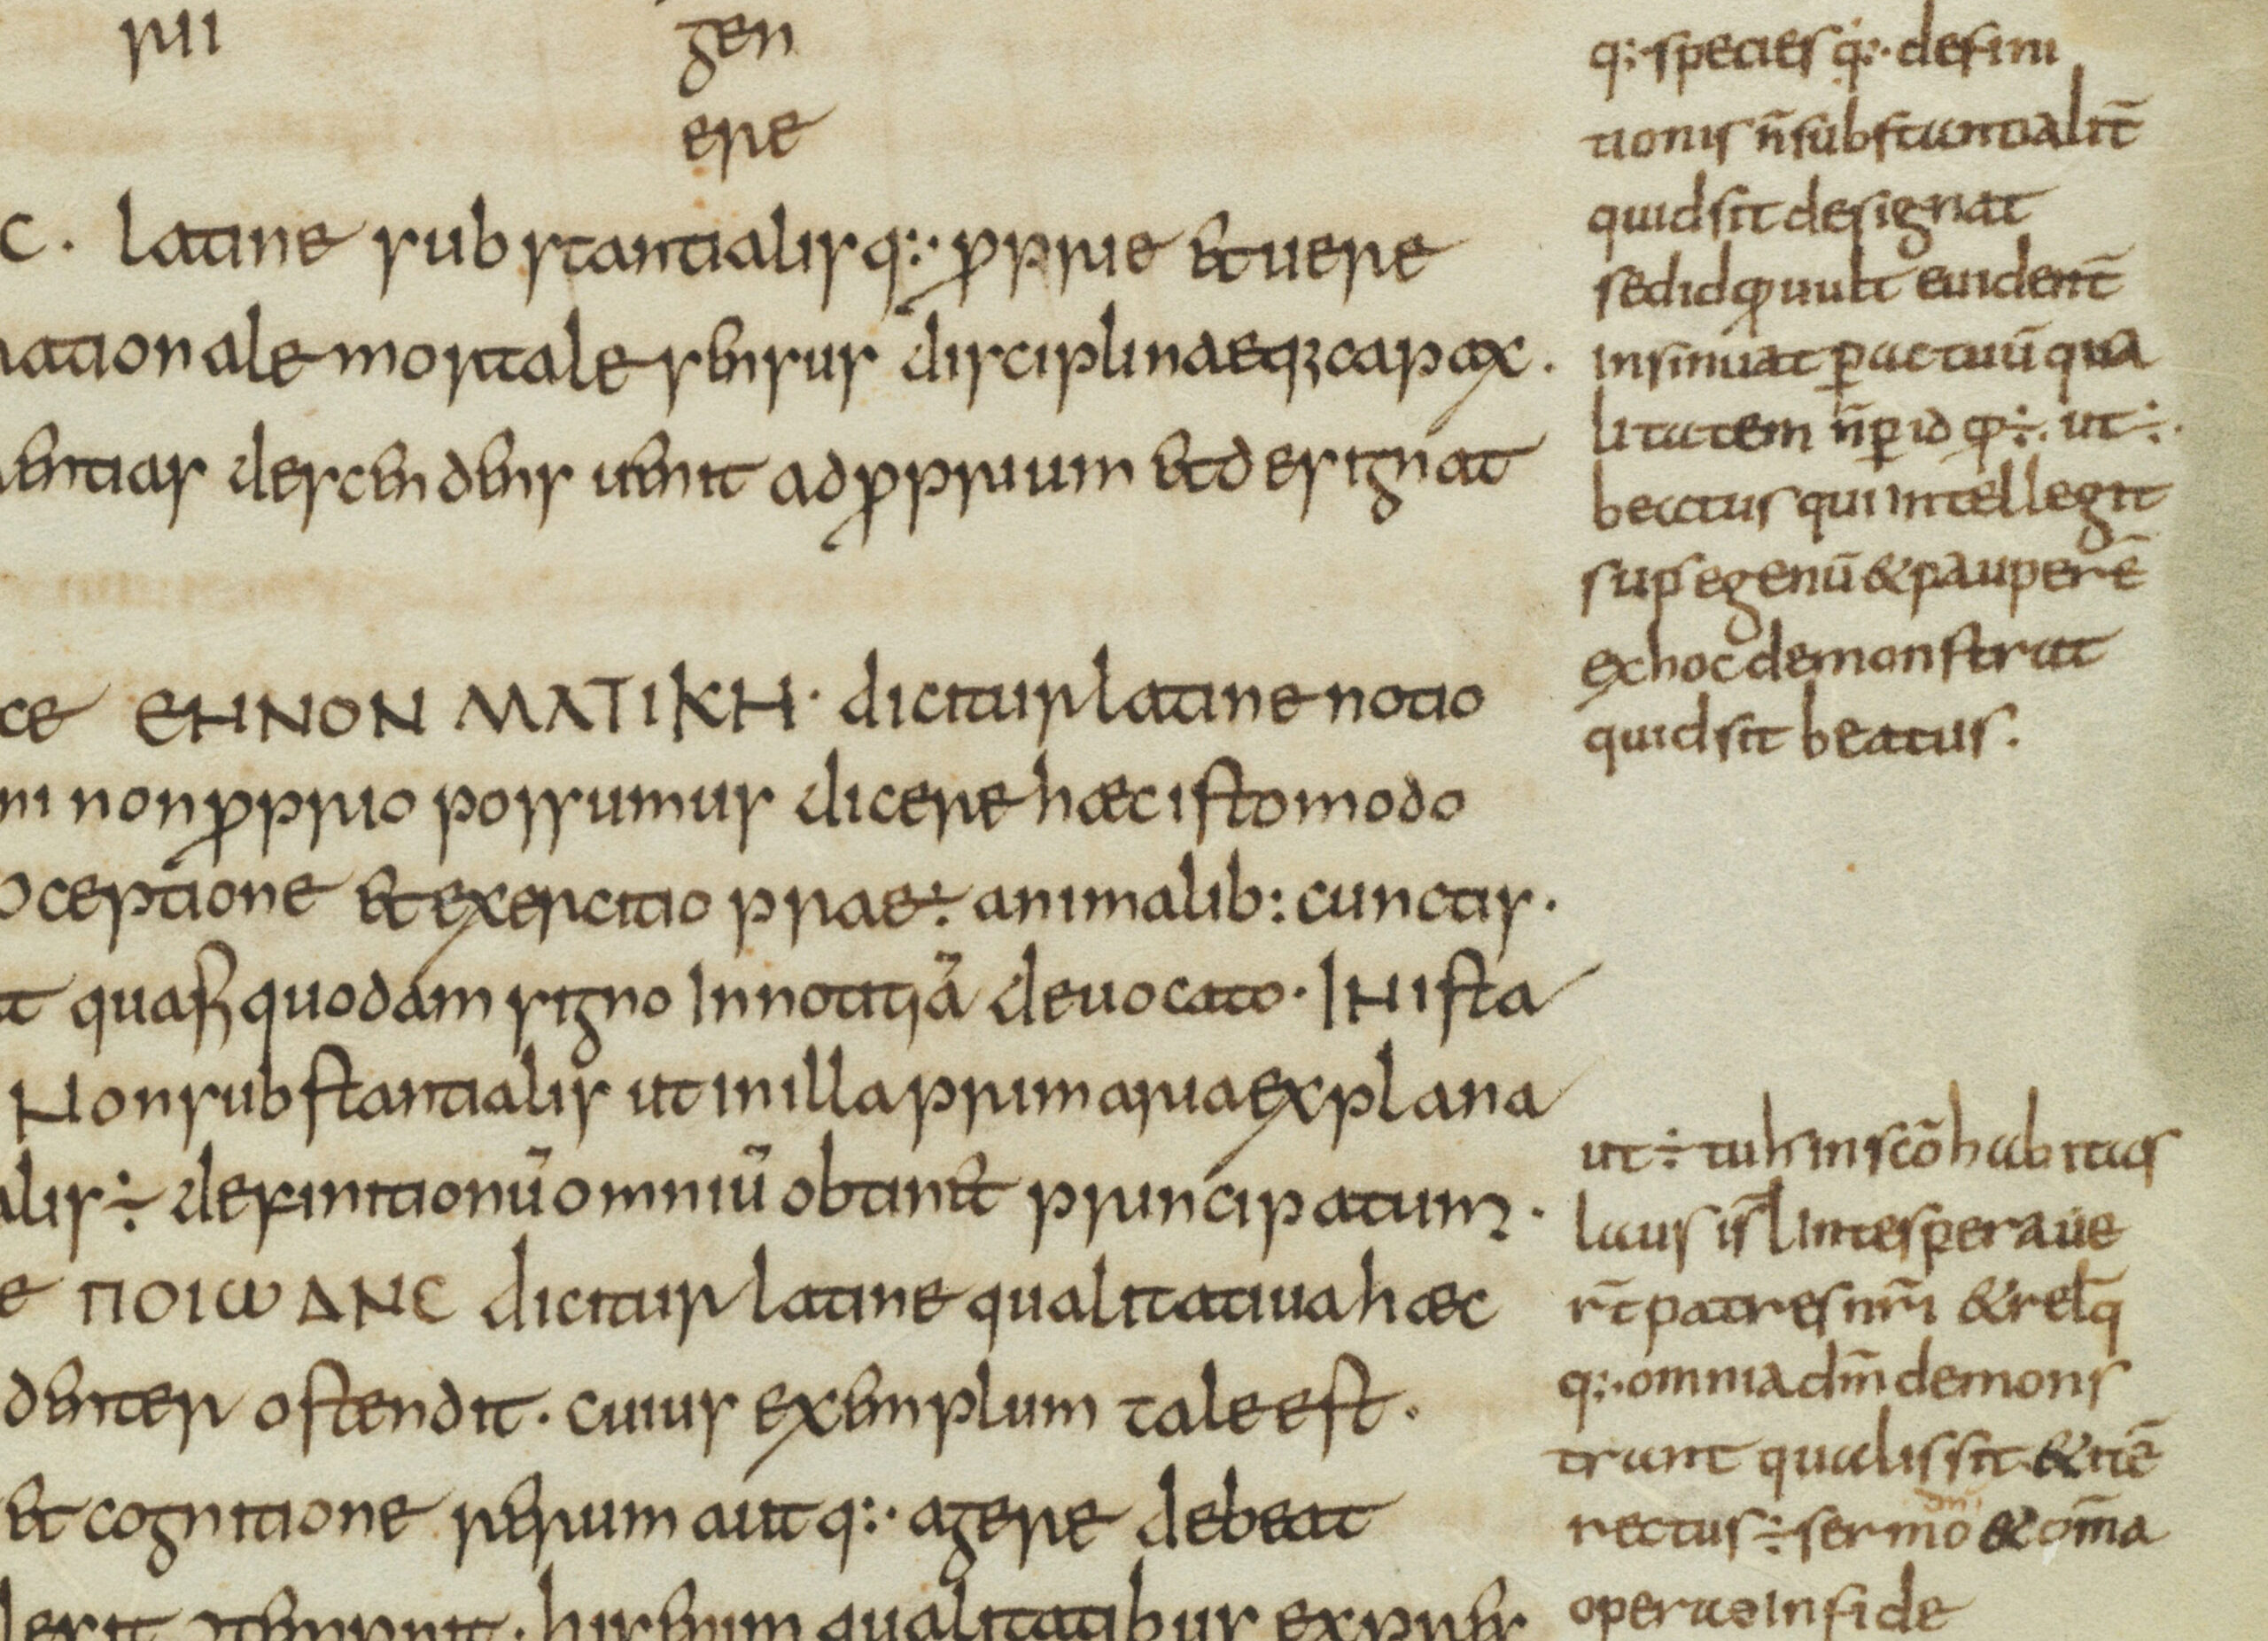 rii gen
ere
c. latine substantialis q:· proprie et uere
rationale mortale sensus disciplinaeq; capax.
entias descendens uenit ad proprium et designat
ce ЄHNNON MATIKH· dicitur latine notio
m non proprio possumus dicere haec isto modo
ceptione et exercitio prae÷ animalib: cunctis.
t quasi quodam signo in notitiā deuocato· IN ista
Non substantialis ut in illa primaria explana
alis ÷ definitionū omniū obtinet principatum.
e ΠΟΙωΔΗC dicitur latine qualitatiua haec
denter ostendit. cuius exemplum tale est.
et cognitione rerum aut q:· agere debeat
his enim qualitatibus expres
q:· species q:· defini
tionis n̄ substantialit̄
quid sit designat
sed id qđ uult euident̄
insinuat p̱ actuū qua
litatem n̄ p̱ id qđ ÷. ut ÷.
beatus qui intellegit
sup̱ egenū & pauperē
ex hoc demonstrat
quid sit beatus.
ut ÷ tu h̄ in scō habitas
laus isr̄l in te speraue
rt̄ patres nr̄i & relq̄
q:· omnia dm̄ demons
trant qualis sit & itē
rectus ÷ sermo dn̄i & om̄a
opera e in fide